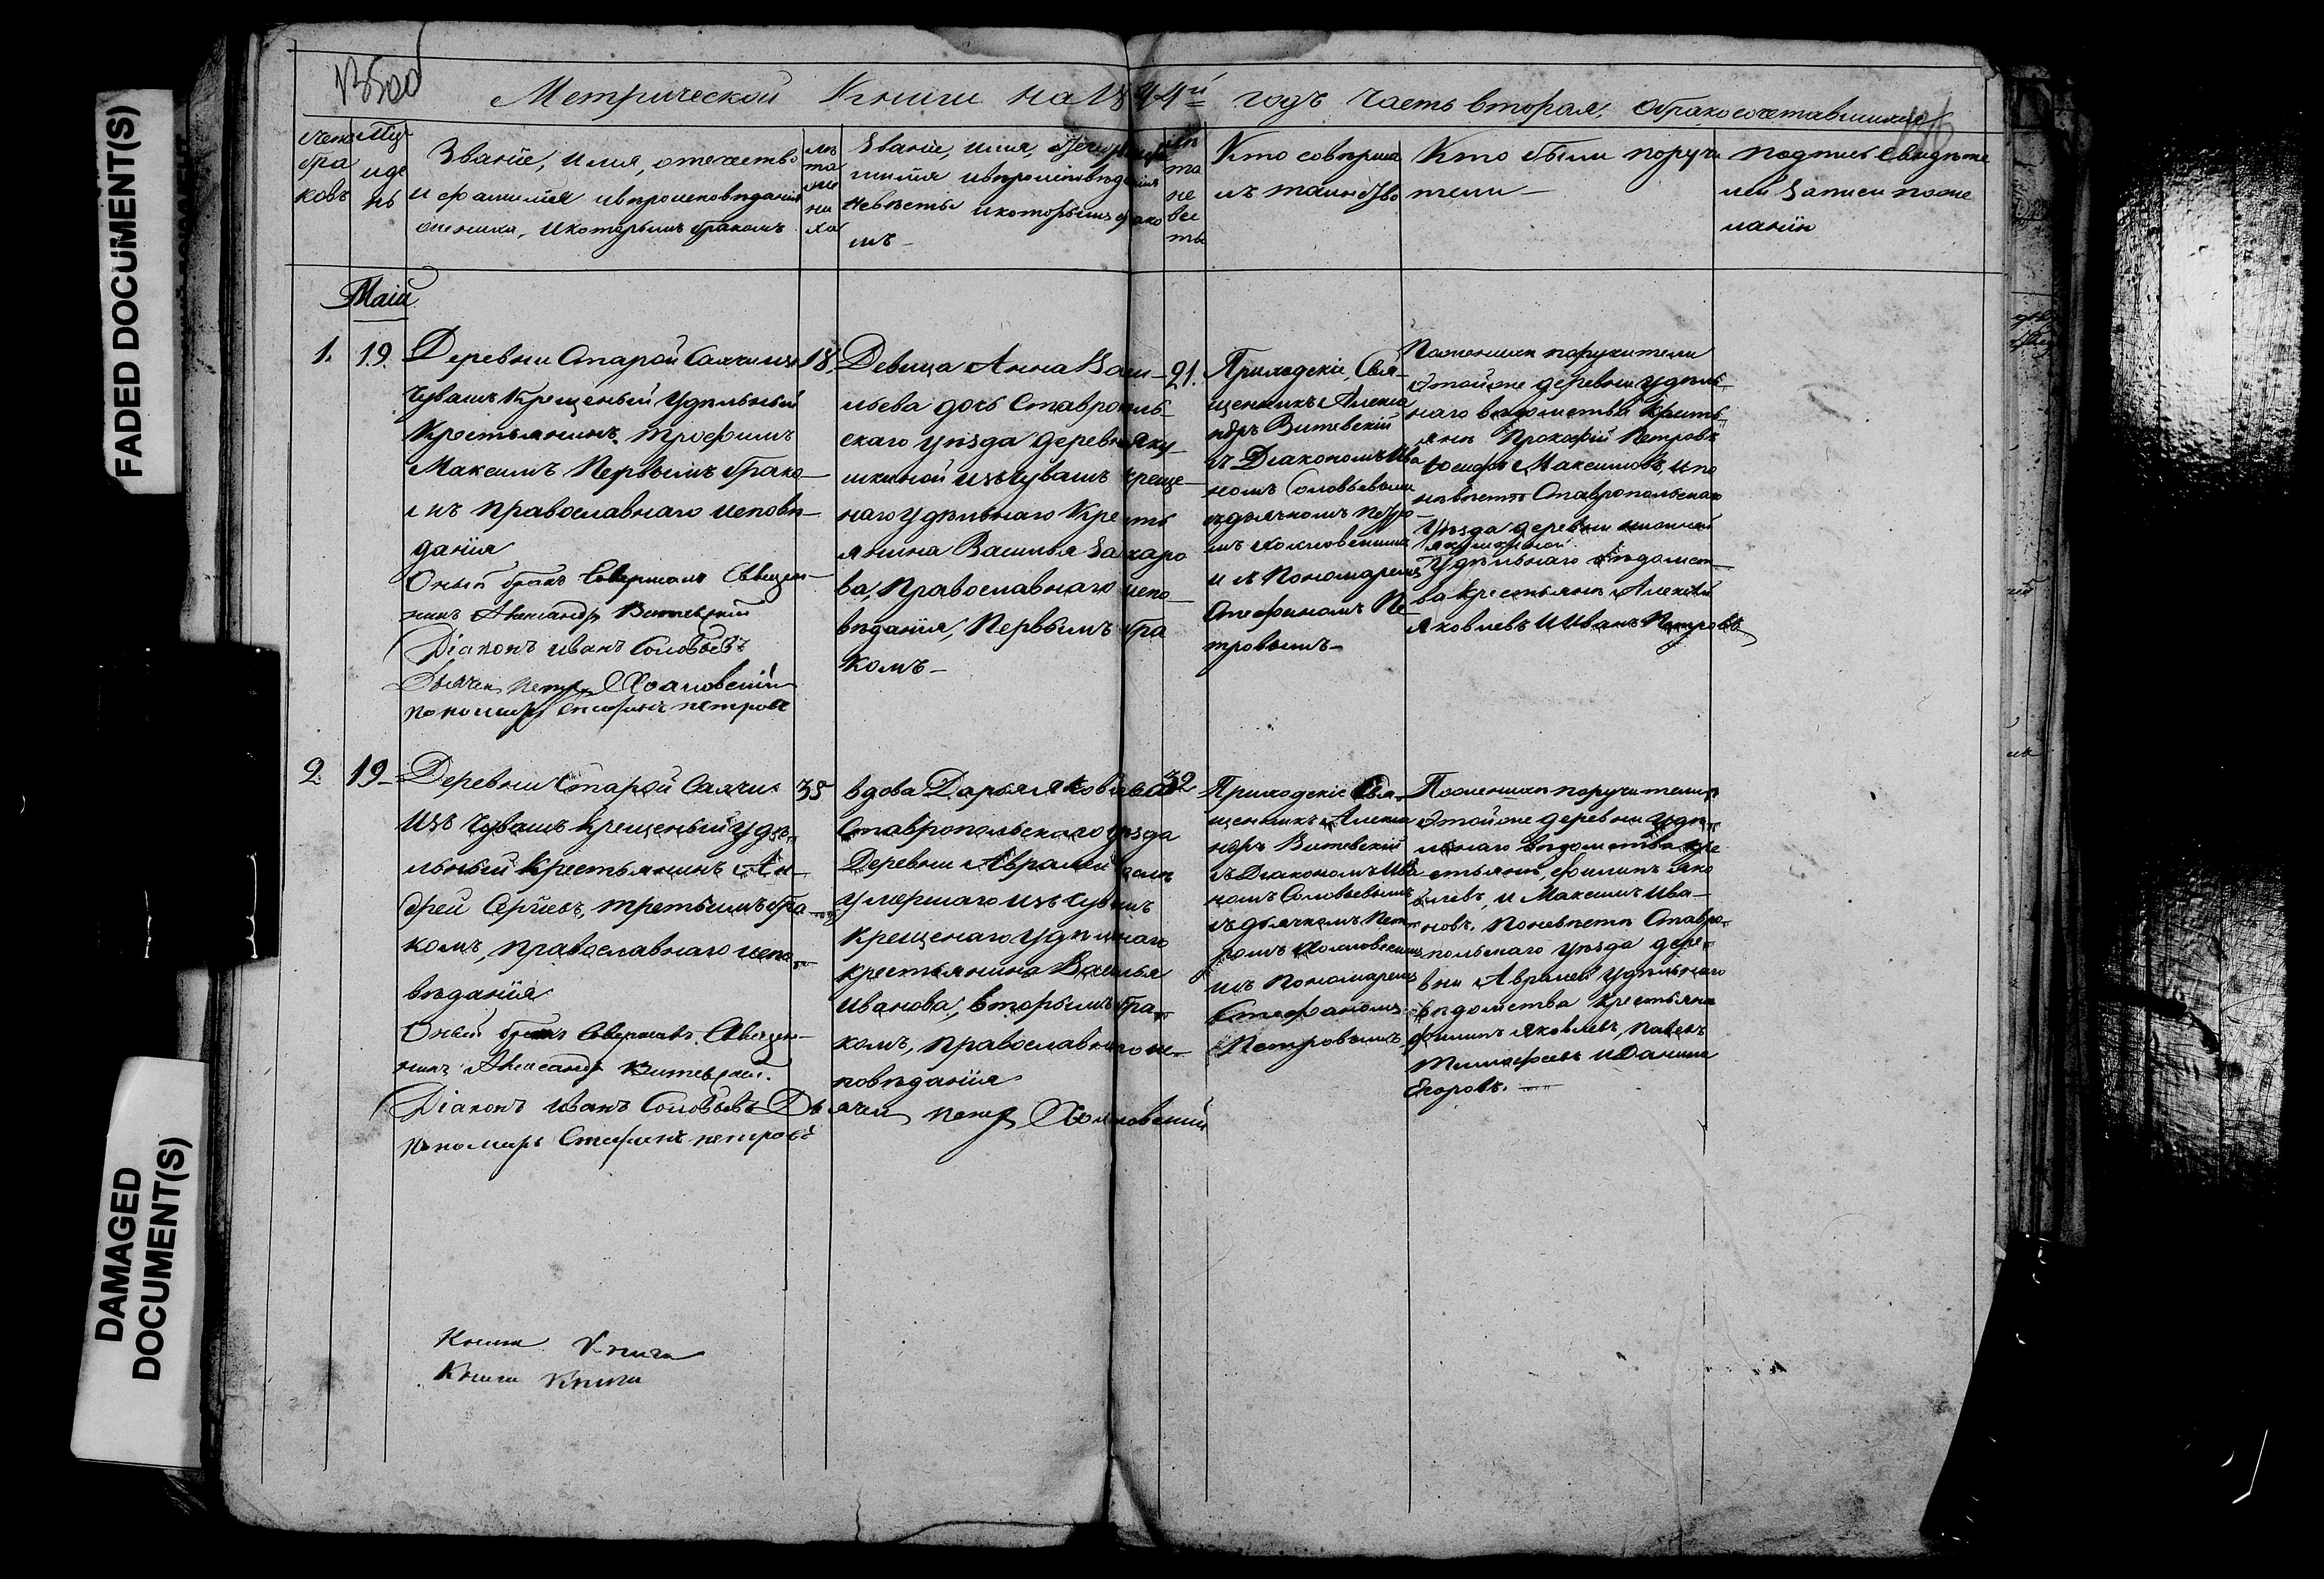 FADED DOCUMENT(S)
DAMAGED
DOCUMENT(S)
Метрической Книги на 1844й годъ часть вторая, о бракосочетавшихся
Счетъ
бра
ковъ
Мц
и де
нь
Званіе, имя, отечество
и фамилія и вероисповѣданія
жениха, и которымъ бракомъ
лѣ
та
же
ни
ха
Званіе, имя,
невѣсты и которымъ брако
мъ
лѣ
та
не
вес
ты
Кто соверша
лъ таинство
Кто были поручи
тели
подпись Свидѣте
лей записи поже
ланію
Маій
1.
19.
Деревни Старой
Чувашъ Крещеный Удѣльный
Крестьянинъ, Трофимъ
Максимъ Первымъ брако
мъ православнаго исповѣ
данія
Оный бракъ Совершалъ Священ
никъ Александръ Витевскій
Діаконъ Иванъ Соловьевъ
Дьячекъ Петръ
пономарь Стефанъ петровъ
18.
Девица Анна Васи
льева дочь Ставрополь
скаго уѣзда деревни Яку
шкиной изъ Чувашъ креще
наго удѣльнаго Кресть
янина Василья Захаро
ва, Православнаго испо
вѣданія, Первымъ бра
комъ
21.
Приходскіе, Свя
щенникъ Алекса
ндръ Витевскій
съ Діакономъ Ива
номъ Соловьевымъ
съ дьячкомъ Петро
мъ
и съ Пономаремъ
Стефаномъ Пе
тровымъ
По женихѣ поручители
этой же деревни удѣль
наго вѣдомства кресть
яне Прокофій Петровъ
Максимовъ, и по
невѣстѣ Ставропольскаго
Уѣзда деревни
якушкиной
Удѣльнаго вѣдомст
ва крестьяне Алексей
Яковлевъ и Иванъ Петровъ
2.
19
Деревни Старой
Изъ Чувашъ крещеный Удѣ
льный крестьянинъ Ан
дрей Сергеевъ, третьимъ бра
комъ, православнаго испо
вѣданія
Оный бракъ Совершалъ Священ
никъ Александръ Витевскій.
Діаконъ Иванъ Соловьевъ Дь ячекъ Петръ
пономарь Стефанъ петровъ
35
вдова Дарья Яковлева
Ставропольскаго уѣзда
Деревни Авралей
умершаго изъ Чувашъ
крещенаго Удѣльнаго
крестьянина Василья
Иванова, вторымъ бра
комъ, православнаго ис
повѣданія
32
Приходскіе Свя
щенникъ Алекса
ндръ Витевскій
съ Діакономъ Ива
номъ Соловьевымъ
съ дьячкомъ Пет
ромъ
съ Пономаремъ
Стефаномъ
Петровымъ
По женихѣ поручители
этой же деревни удѣ
льнаго вѣдомства кре
стьяне, филипъ яко
влевъ, и Максимъ Ива
новъ. По невѣсте Ставро
польскаго уѣзда дере
вни Авралей Удѣльнаго
вѣдомства крестьяне
филипъ яковлевъ, павелъ
Тимофеевъ и Данила
Егоровъ.
Книга Книга
Книги Книги